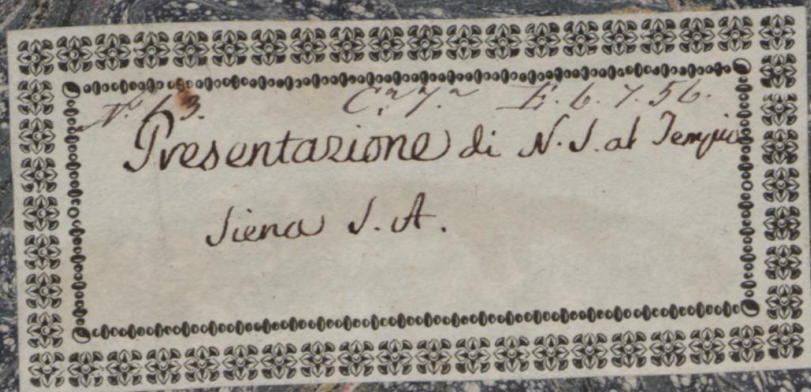 N.º 63. C.ª 7.ª E. 6. 7. 56.
Presentazione di N. S. al Tempio
Siena S. A.